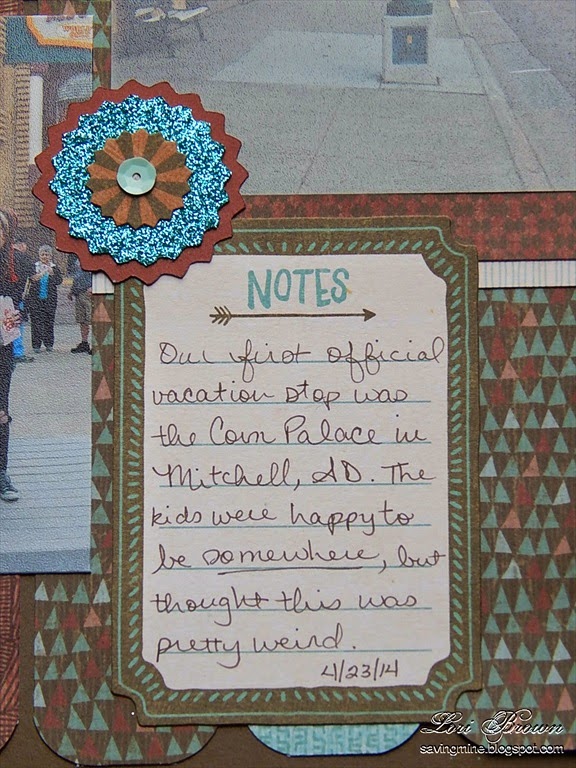 NOTES
Our first official
vacation stop was
the Corn Palace in
Mitchell, SD. The
kids were happy to
be somewhere, but
thought this was
pretty weird.
4/23/14
Lori Brown
savingmine.blogspot.com